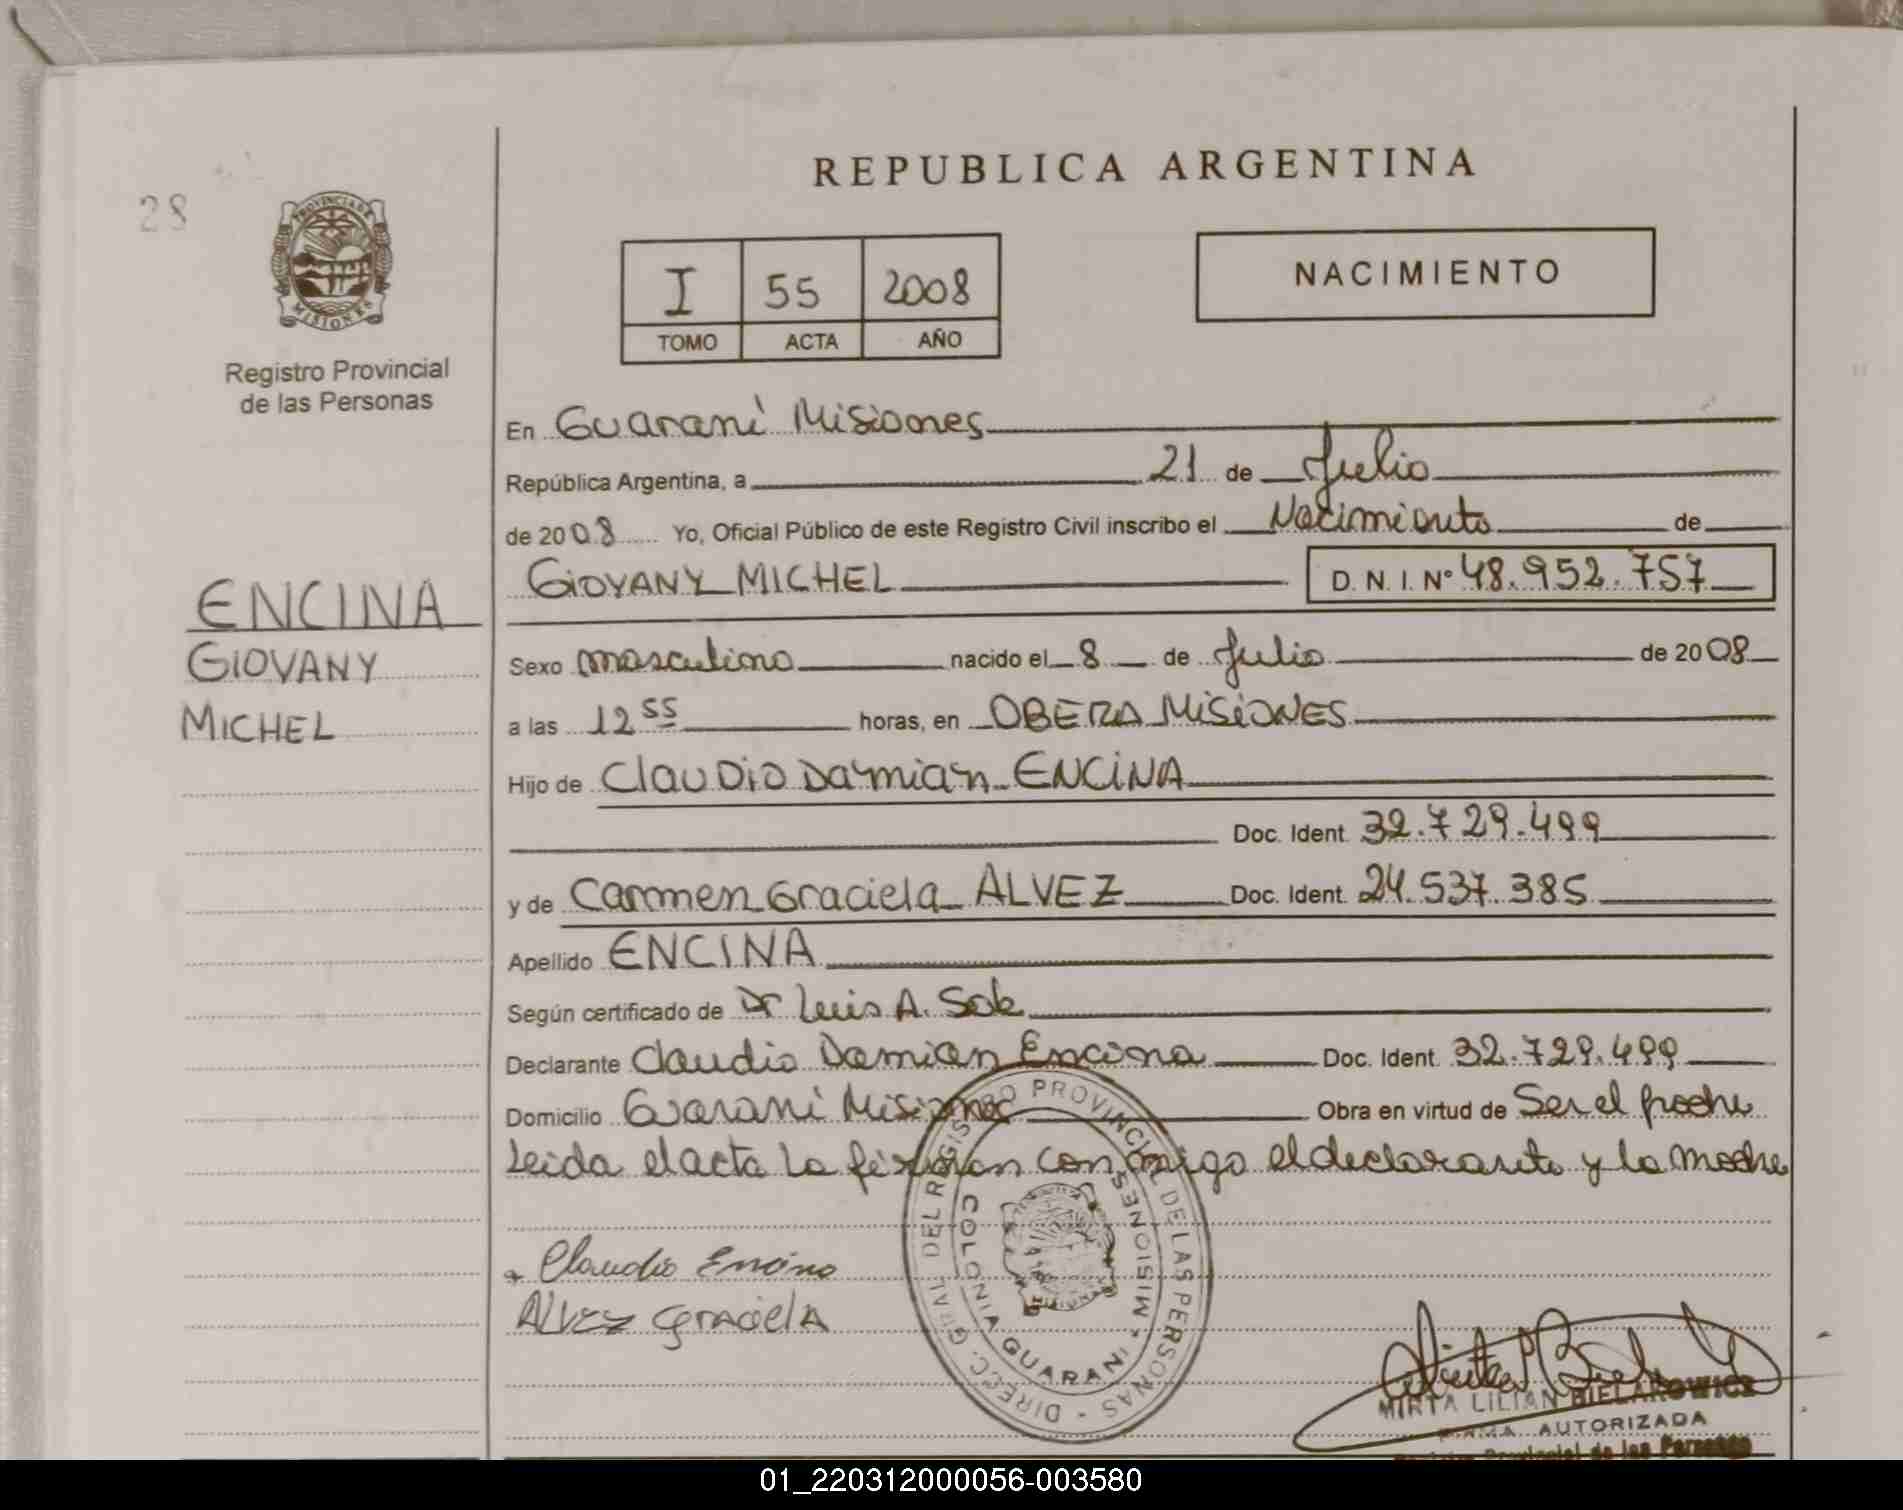 REPUBLICA ARGENTINA
28
PROVINCIA DE MISIONES
I 55 2008
TOMO ACTA AÑO
NACIMIENTO
Registro Provincial
de las Personas
En Guaraní Misiones
República Argentina, a 21 de Julio
de 2008 Yo, Oficial Público de este Registro Civil inscribo el Nacimiento de
GIOVANY MICHEL D. N. I. Nº 48.952.757
ENCINA
GIOVANY
MICHEL
Sexo masculino nacido el 8 de Julio de 2008
a las 12 55 horas, en OBERA MISIONES
Hijo de Claudio Damian ENCINA
Doc. Ident. 32.729.499
y de Carmen Graciela ALVEZ Doc. Ident. 24.537.385
Apellido ENCINA
Según certificado de Dr Luis A.
Declarante Claudio Damian Encina Doc. Ident. 32.729.499
Domicilio Guaraní Misiones Obra en virtud de Ser el padre
Leida el acta La firman con migo el declarante y la madre
Claudio Encina
ALVEZ GRACIELA
DIRECC. GRAL. DEL REGISTRO PROVINCIAL DE LAS PERSONAS
COLONIA GUARANI - MISIONES
MIRTA LILIAN BIELAKOWICZ
FIRMA AUTORIZADA
Registro Provincial de las Personas
01_220312000056-003580